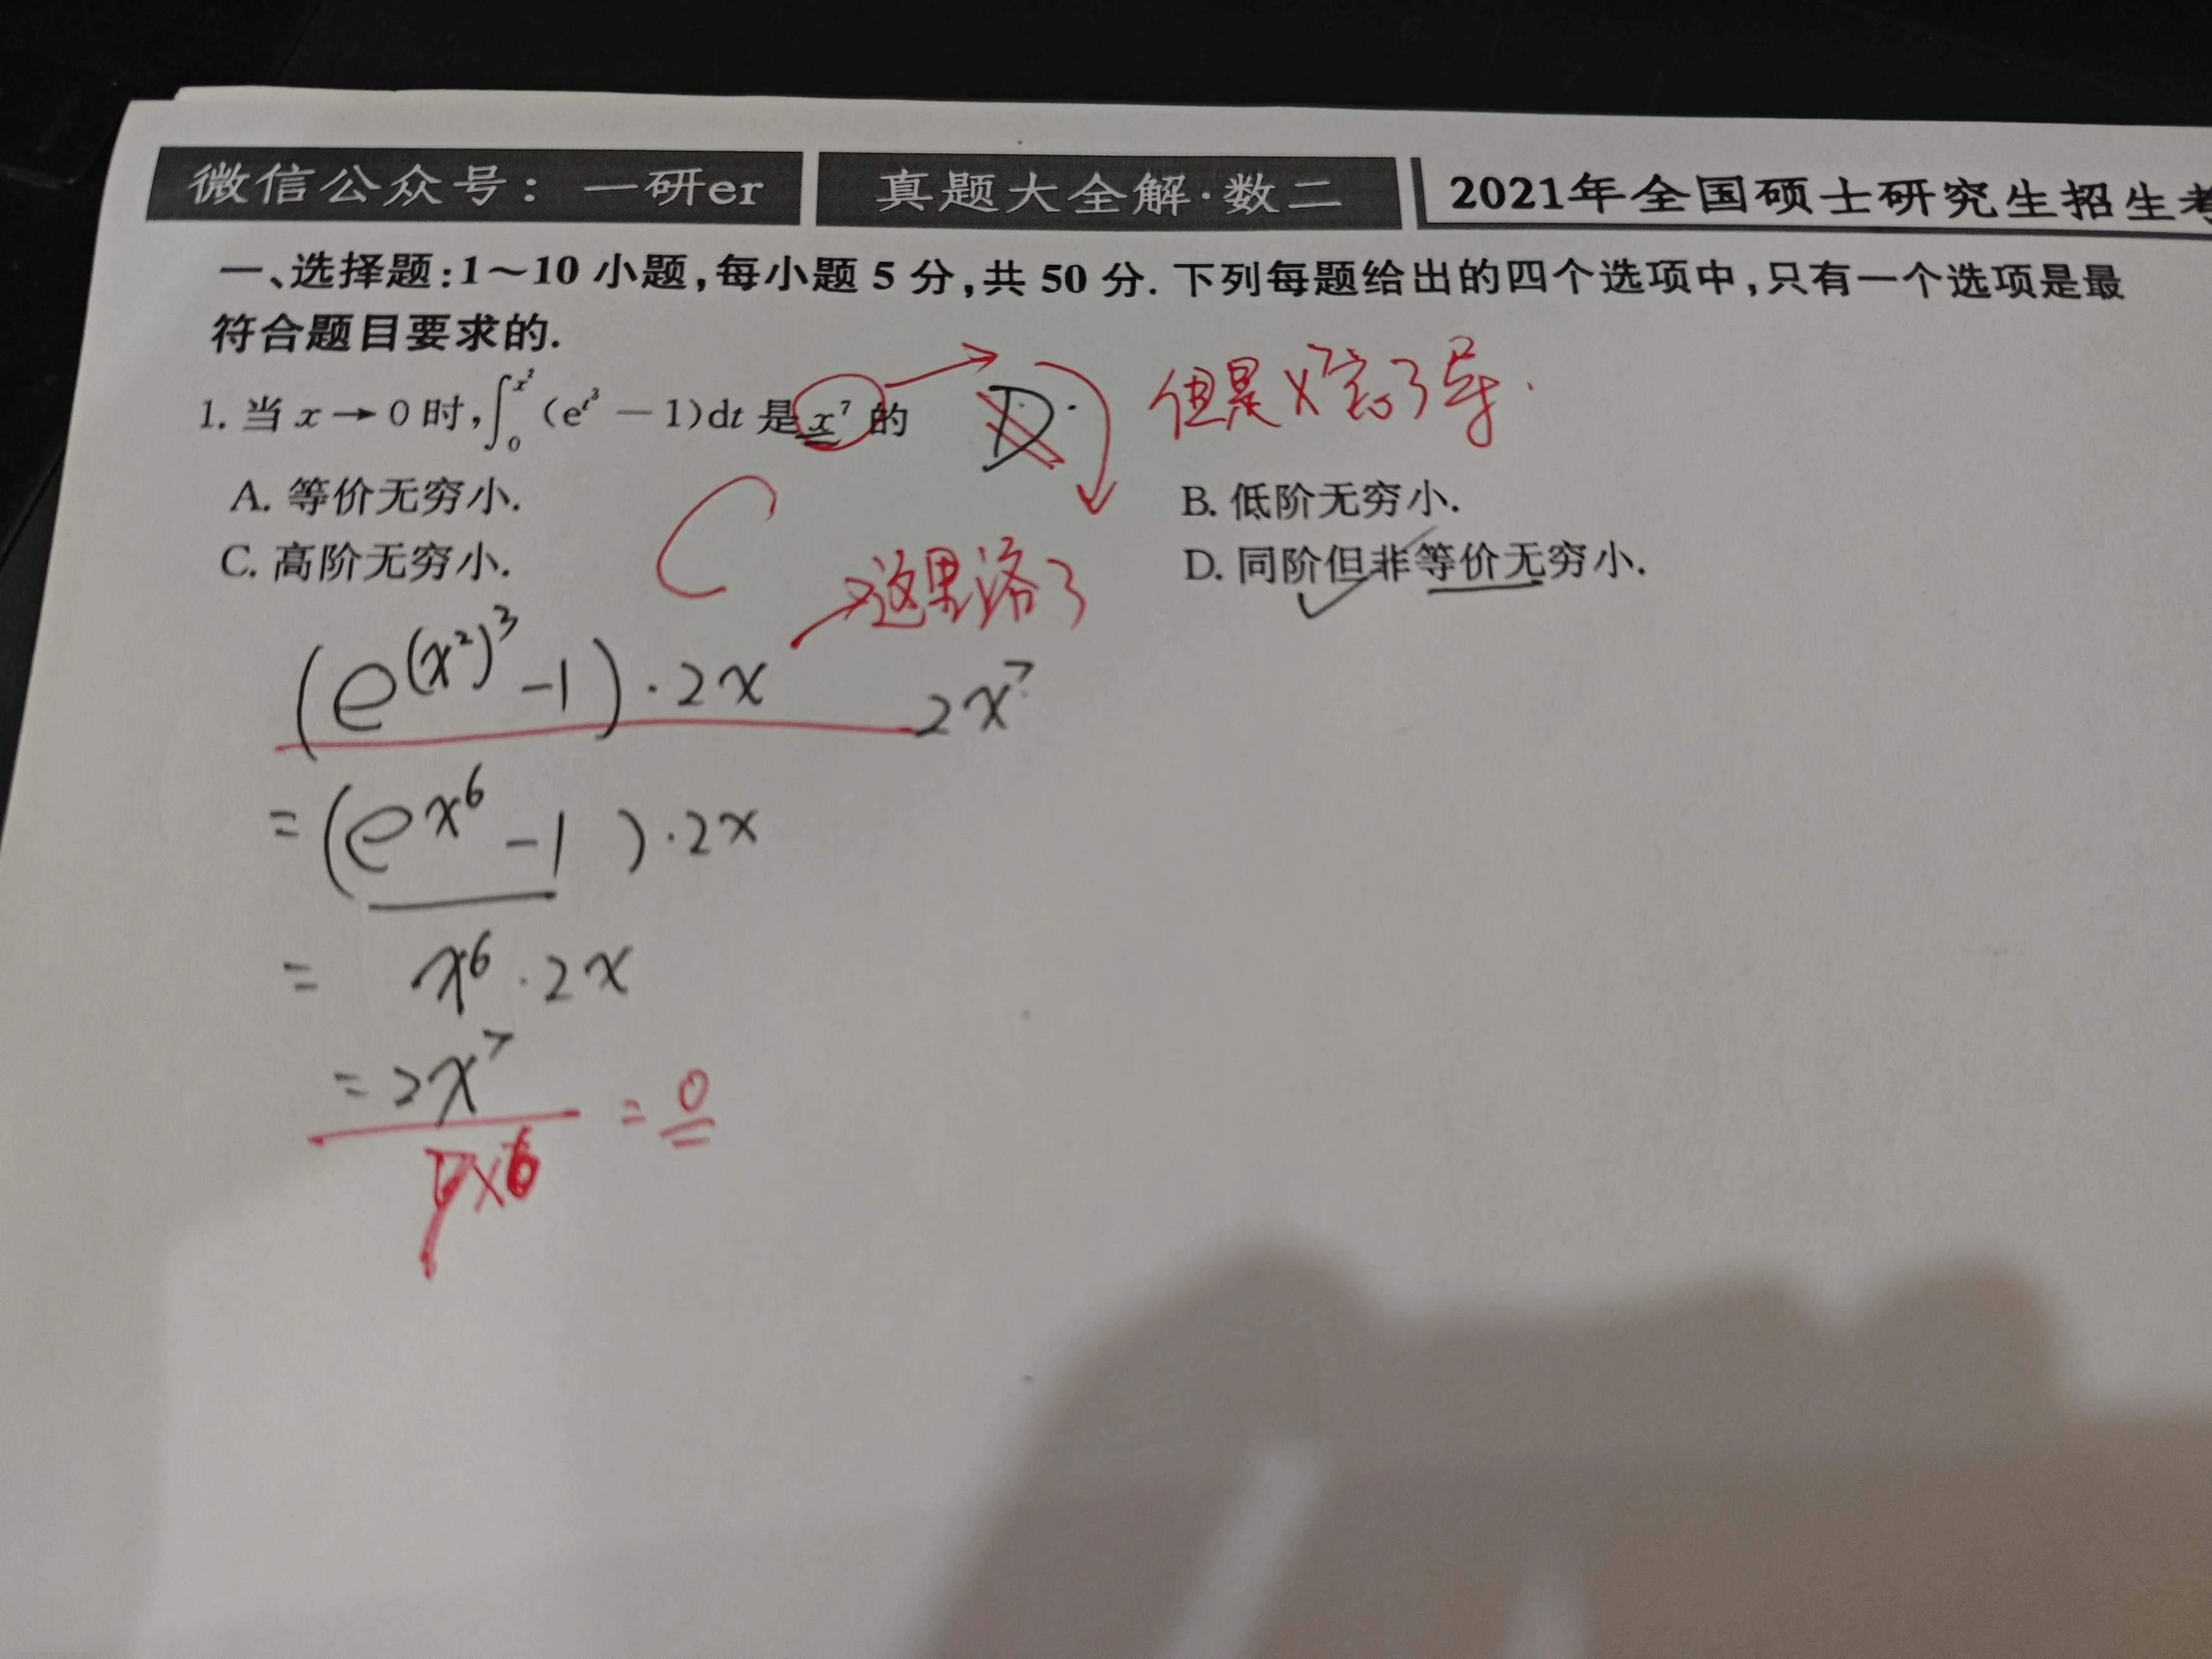 微信公众号：一研er 真题大全解·数二 2021年全国硕士研究生招生考
一、选择题:1～10 小题,每小题 5 分,共 50 分. 下列每题给出的四个选项中,只有一个选项是最
符合题目要求的.
1. 当 x→0 时,∫₀^{x²}(e^{t³}－1)dt 是 x⁷ 的 D. 但是x⁷忘了导.
A. 等价无穷小. B. 低阶无穷小.
C. 高阶无穷小. C D. 同阶但非等价无穷小.
→这里落了
(e^{(x²)³}-1)·2x 2x⁷
=(e^{x⁶}-1)·2x
= x⁶·2x
=2x⁷ = 0
7x⁶